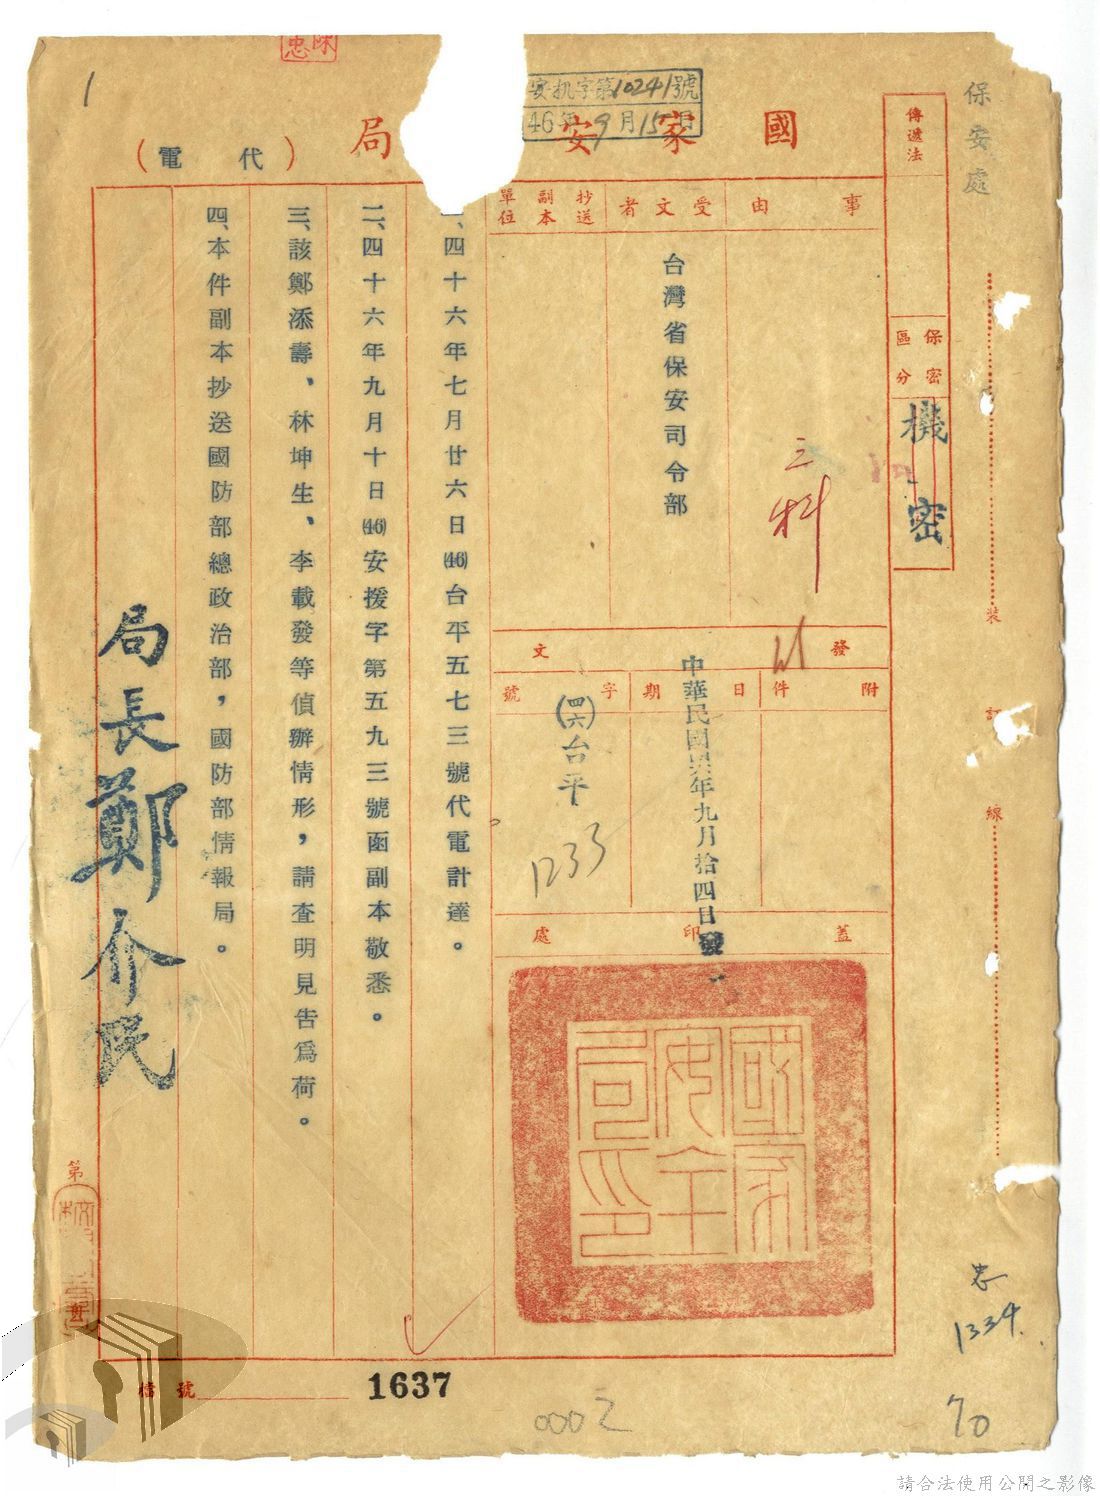 保安處
傳遞法
保密區分
機密
安机字第10241號
46年9月15日
國家安
局
(代電)
事由
受文者
抄送副本單位
三科
台灣省保安司令部
發文
附件
日期
字號
中華民國四六年九月拾四日發
(四六)台平
1233
蓋印處
國家安全局印
一、四十六年七月廿六日(46)台平五七三號代電計達。
二、四十六年九月十日(46)安援字第五九三號函副本敬悉。
三、該鄭添壽、林坤生、李載發等偵辦情形,請查明見告爲荷。
四、本件副本抄送國防部總政治部,國防部情報局。
局長鄭介民
裝
訂
線
第
檔號
1637
0002
忠
1334.
70
1
請合法使用公開之影像